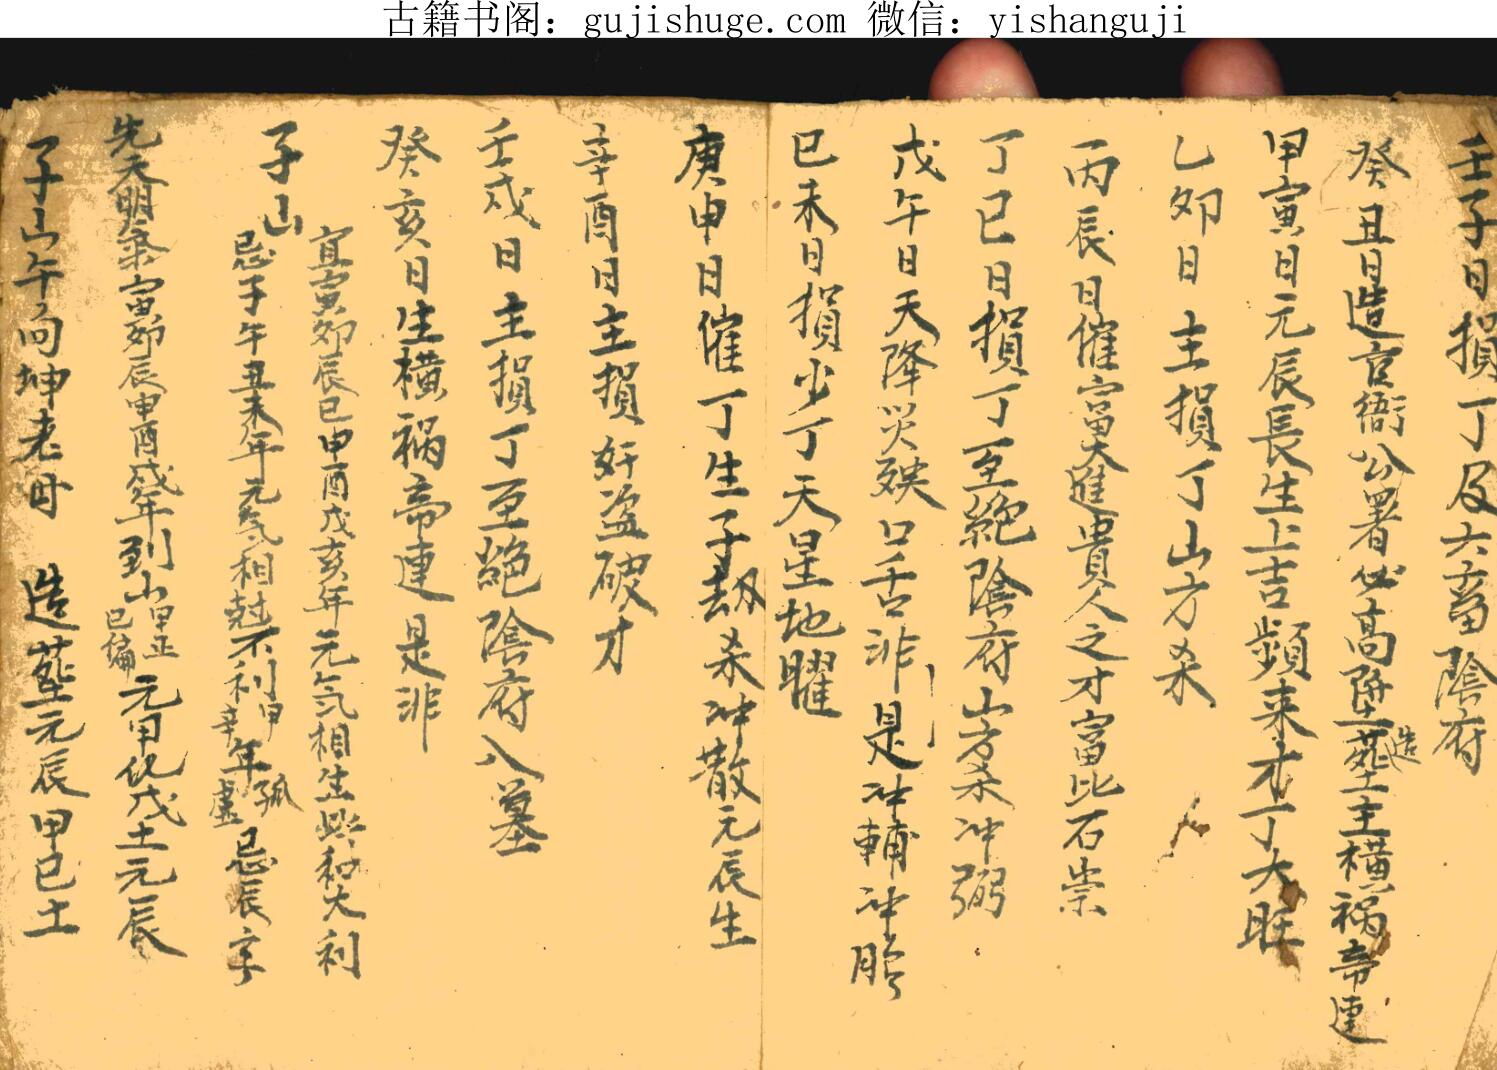 古籍书阁：gujishuge.com 微信：yishanguji
壬子日損丁及六畜陰府
癸丑日造官衙公署必高陞造塟主橫祸帝連
甲寅日元辰長生上吉頻来才丁大旺
乙夘日主損丁山方杀
丙辰日催富大進貴人之才富比石崇
丁巳日損丁至絕陰府山方杀冲弼
戊午日天降災殃口舌非是冲輔冲胎
巳未日損少丁天星地曜
庚申日催丁生子刼杀冲散元辰生
辛酉日主損奸盗破才
壬戌日主損丁至絕陰府入墓
癸亥日生橫祸帝連是非
子山
宜寅夘辰巳申酉戊亥年元气相生比和大利
忌子午丑未年元气相尅不利甲辛年孤虛忌辰字
先天明祭寅夘辰申酉戌年到山甲正已偏元甲化戊土元辰
子山午向坤老母 造塟元辰甲巳土